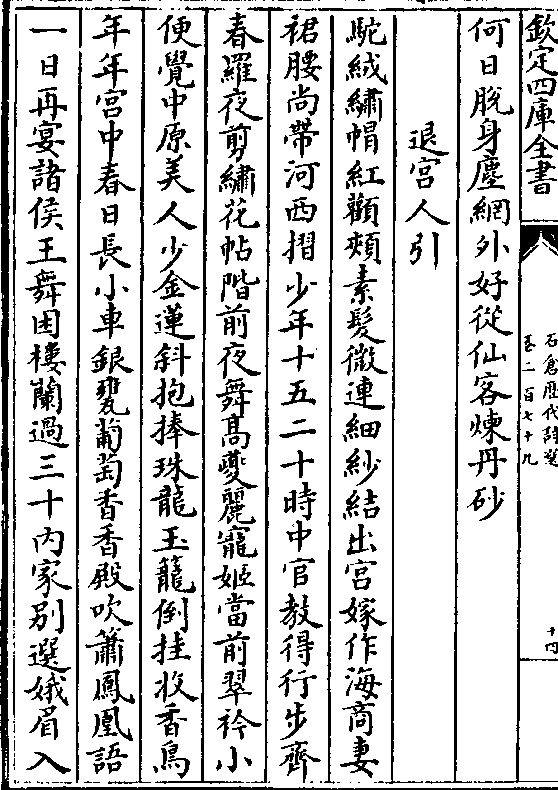 欽定四庫全書
石倉歷代詩選
卷二百七十九
十四
何日脫身塵網外好從仙客煉丹砂
退宫人引
駝絨繡帽紅顴頰素髮微連細紗結出宫嫁作海商妻
裙腰尚帶河西摺少年十五二十時中官教得行步齊
春羅夜剪繡花帖階前夜舞髙麗寵姬當前翠衿小
便覺中原美人少金蓮斜抱捧珠龍玉籠倒挂收香鳥
年年宫中春日長小車銀甕葡萄香香殿吹簫鳳凰語
一日再宴諸侯王舞困樓蘭過三十内家别選娥眉入